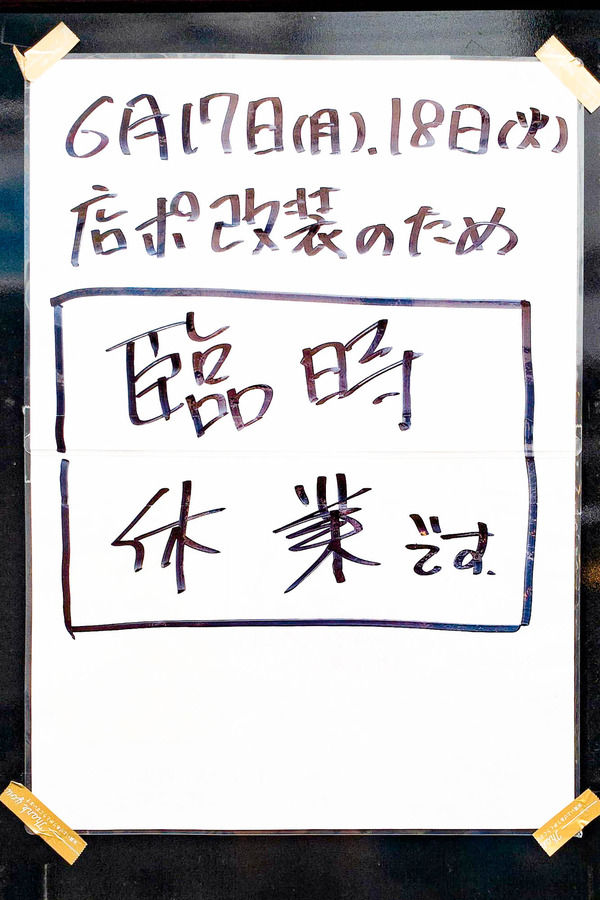 6月17日(月).18日(火)
店舗改装のため
臨時
休業です.
Thank you